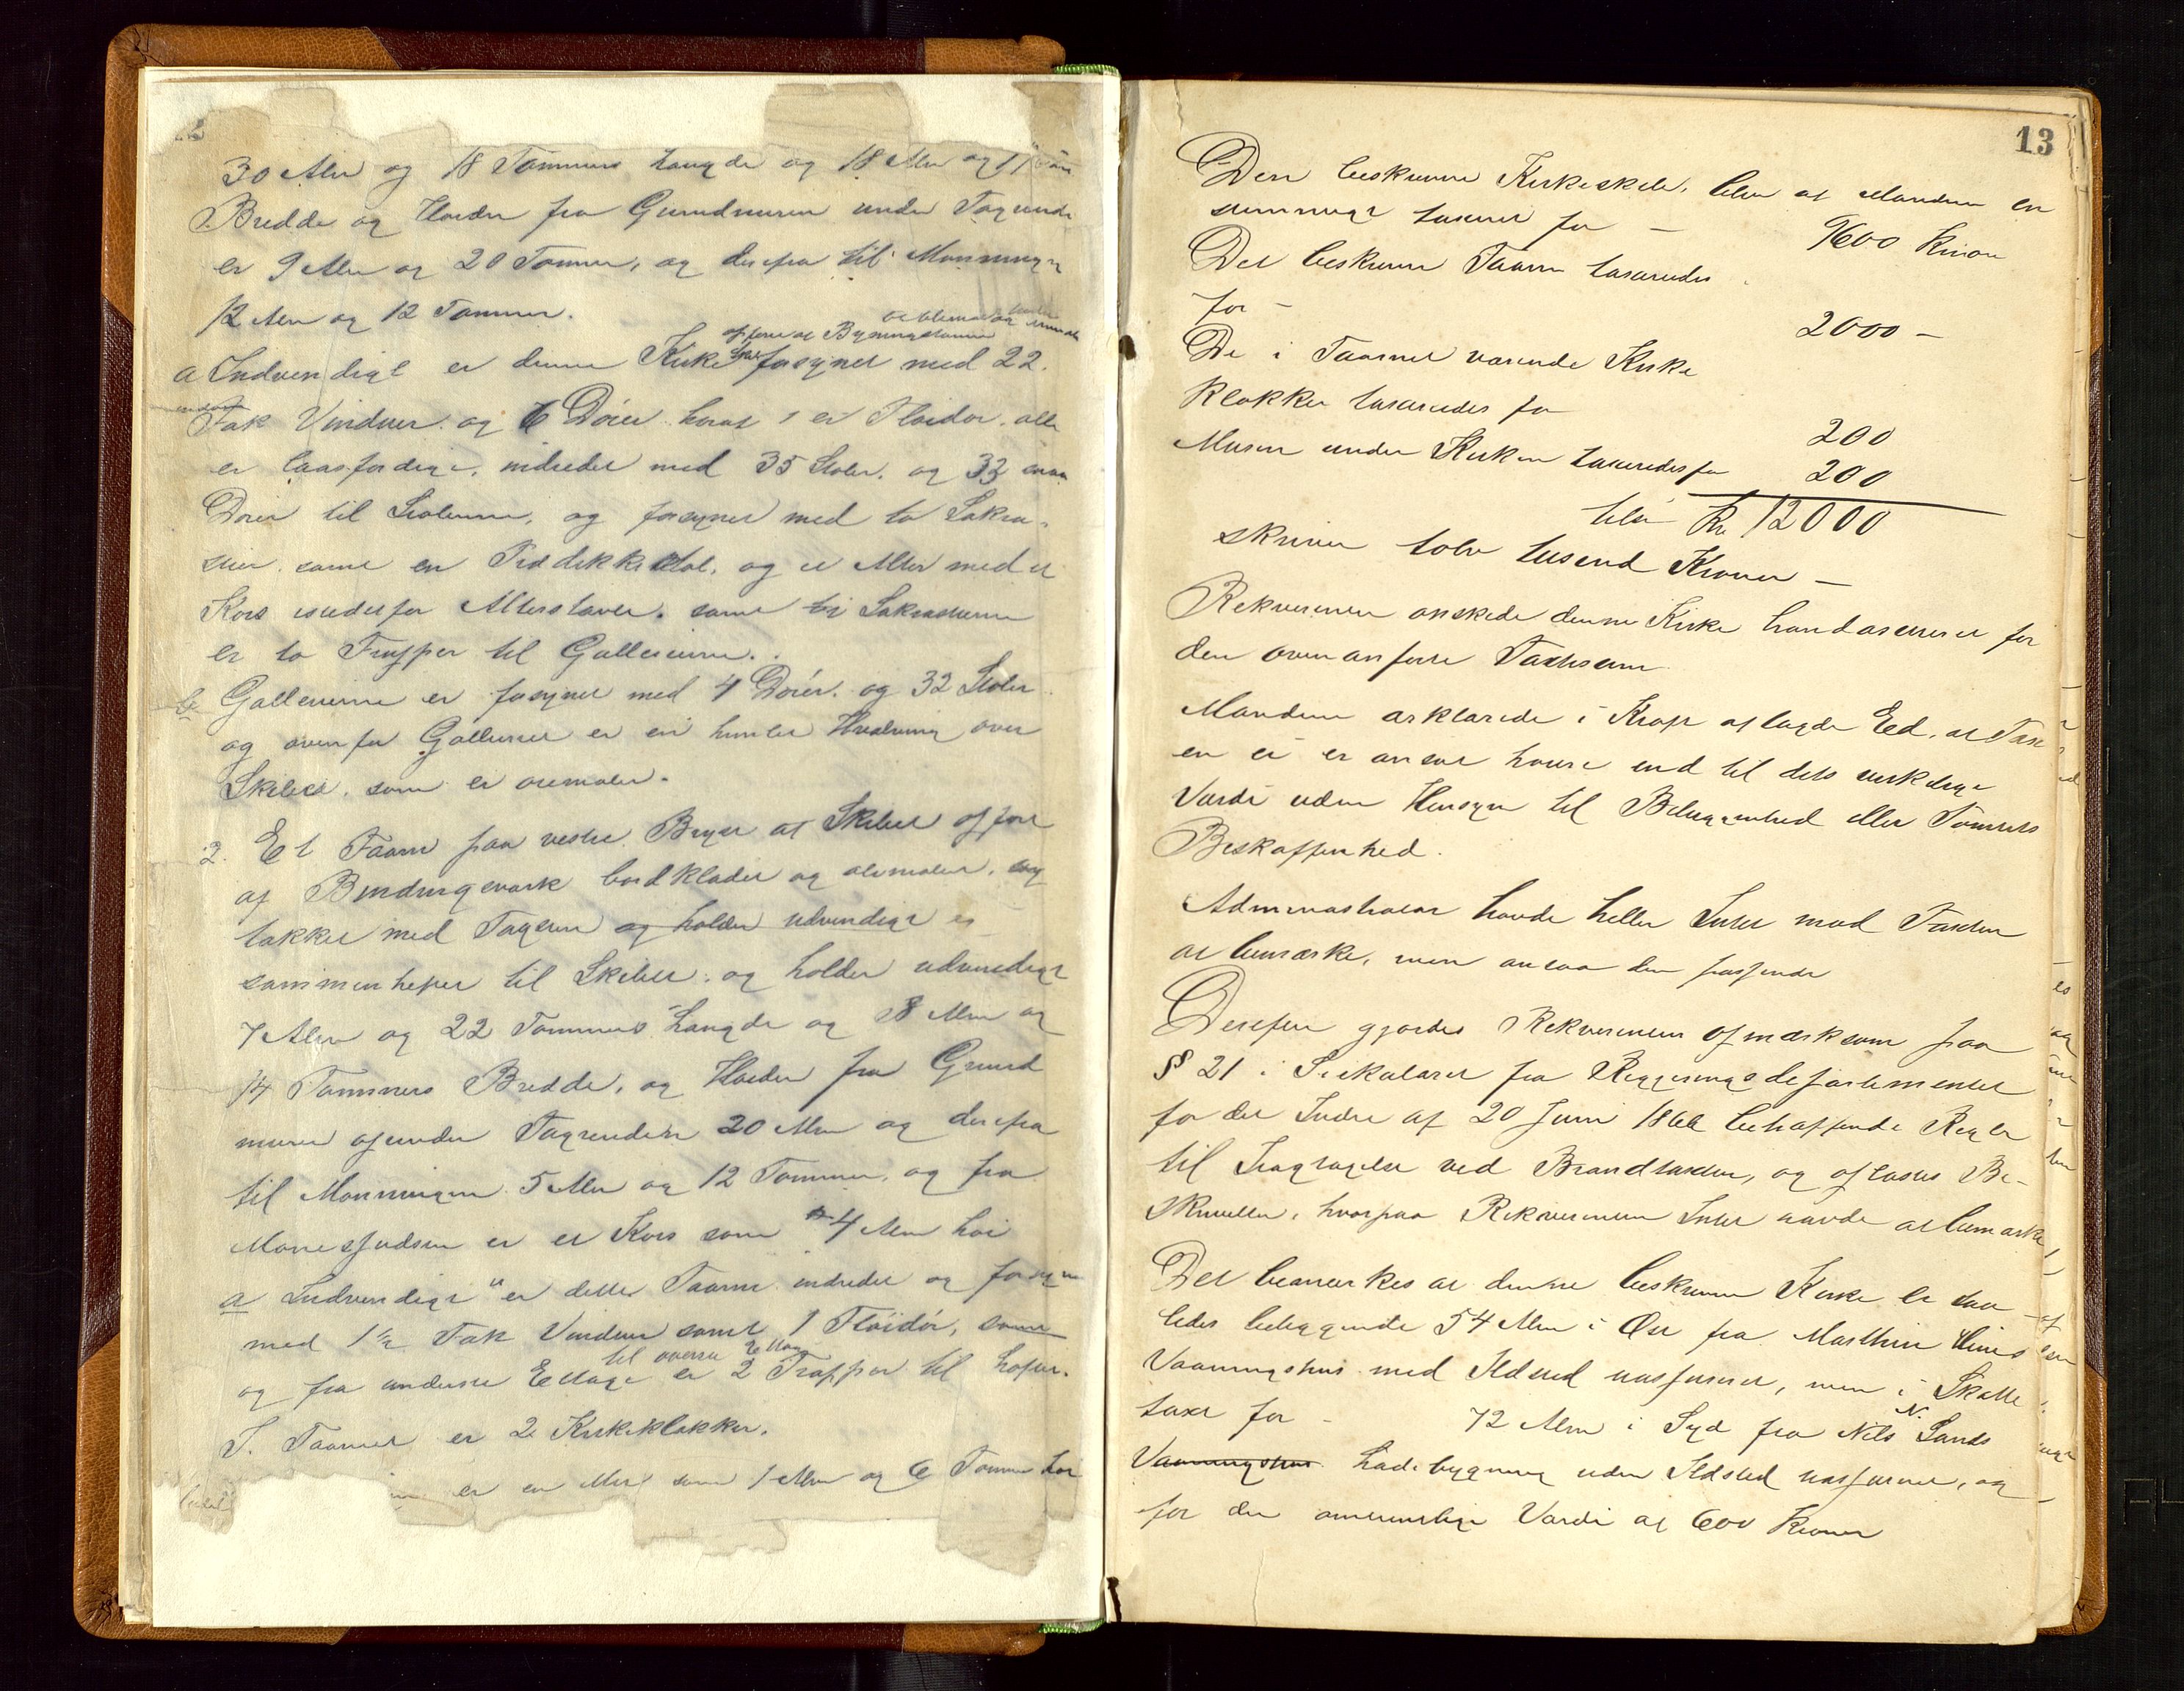 30 Alen og 18 Tommers Længde og 18 Alen og 11
Bredde og Høiden fra Grundmuren under Tagrende
er 9 Alen og 20 Tommer, og derefra til Mønningen
12 Alen og 12 Tommer.
opført af Bygningstømmer
a Indvendigt er denne Kirke forsynet med 22
Fak Vinduer og 6 Dører hvoraf 1 er Fløidør, alle
er laasfærdige, indredet med 35 Stoler og 33
Dører til Stolerne, og forsynet med to Sakra-
stier samt en Prædikkestol, og et Alter med et
Kors istedetfor Altertavle. samt i Sakrastierne
er to Trapper til Gallerierne.
b Gallerierne er forsynet med 4 Dører og 32 Stoler
og ovenfor Galleriet er en himlet Hvælving over
Skibet, som er oliemalet.
2. Et Taarn paa vestre Byg af Skibet opført
af Bindingsværk bordklædet og oliemalet, og
tækket med Tagsten og holder udvendigt er
sammenheftet til Skibet, og holder udvendigt
7 Alen og 22 Tommers Længde og 8 Alen og
14 Tommers Bredde, og Høiden fra Grund
muren og under Tagrenden 20 Alen og derefra
til Mønningen 5 Alen og 12 Tommer, og fra
Mønespidsen er et Kors som 4 Alen høi
a Indvendigt er dette Taarn indredet og forsynet
med 1 1/2 Fak Vinduer samt 1 Fløidør, samt
til øverste Etage
og fra underste Etage er 2 Trapper til
I Taarnet er 2 Kirkeklokker.
er en Mur som 1 Alen og 6 Tommer høi
13
Den beskrevne Kirkeskib, blev af Mændene en
stemmigt taxeret for – 9600 Kroner
Det beskrevne Taarn taxeredes
for – 2000 –
De i Taarnet værende Kirke
klokker taxeredes for 200
Muren under Kirken taxeredes for 200
tils Kr 12000
skriver tolv tusend Kroner –
Rekvirenten ønskede denne Kirke brandassureret for
den ovenanførte Taxtsum
Mændene erklærede i Kraft aflagde Ed, at Taxt
en ei er ansat høiere end til dets virkelige
Værdi uden Hensyn til Beliggenhed eller Tomtets
Beskaffenhed.
Administrator havde heller Intet mod Taxten
at bemærke, men ansaa den passende
Derefter gjordes Rekvirenten opmærksom paa
§ 21 i Sirkulæret fra Regjeringsdepartementet
for det Indre af 20 Juni 1866 betræffende Regler
til Iagtagelse ved Brandtaxter, og oplæstes Be-
skrivelsen, hvorpaa Rekvirenten Intet havde at bemærke
Det bemærkes at denne beskrevne Kirke er saa
ledes beliggende 54 Alen i Øst fra Marthin
Vaaningshus med Ildsted uassureret, men i Skatte
taxt for – 72 Alen i Syd fra Nils N. Sands
Vaaningshus Ladebygning uden Ildsted uassureret, og
for den omtrentlige Værdi af 600 Kroner